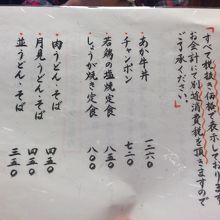 すべて税抜き価格で表示しております
お会計にて別途消費税を頂きますので
ご了承ください
あか牛丼 一二六〇
チャンポン 七二〇
若鶏の塩焼定食 八〇〇
しょうが焼き定食 八〇〇
肉うどん・そば 四五〇
月見うどん・そば 四五〇
並うどん・そば 三五〇